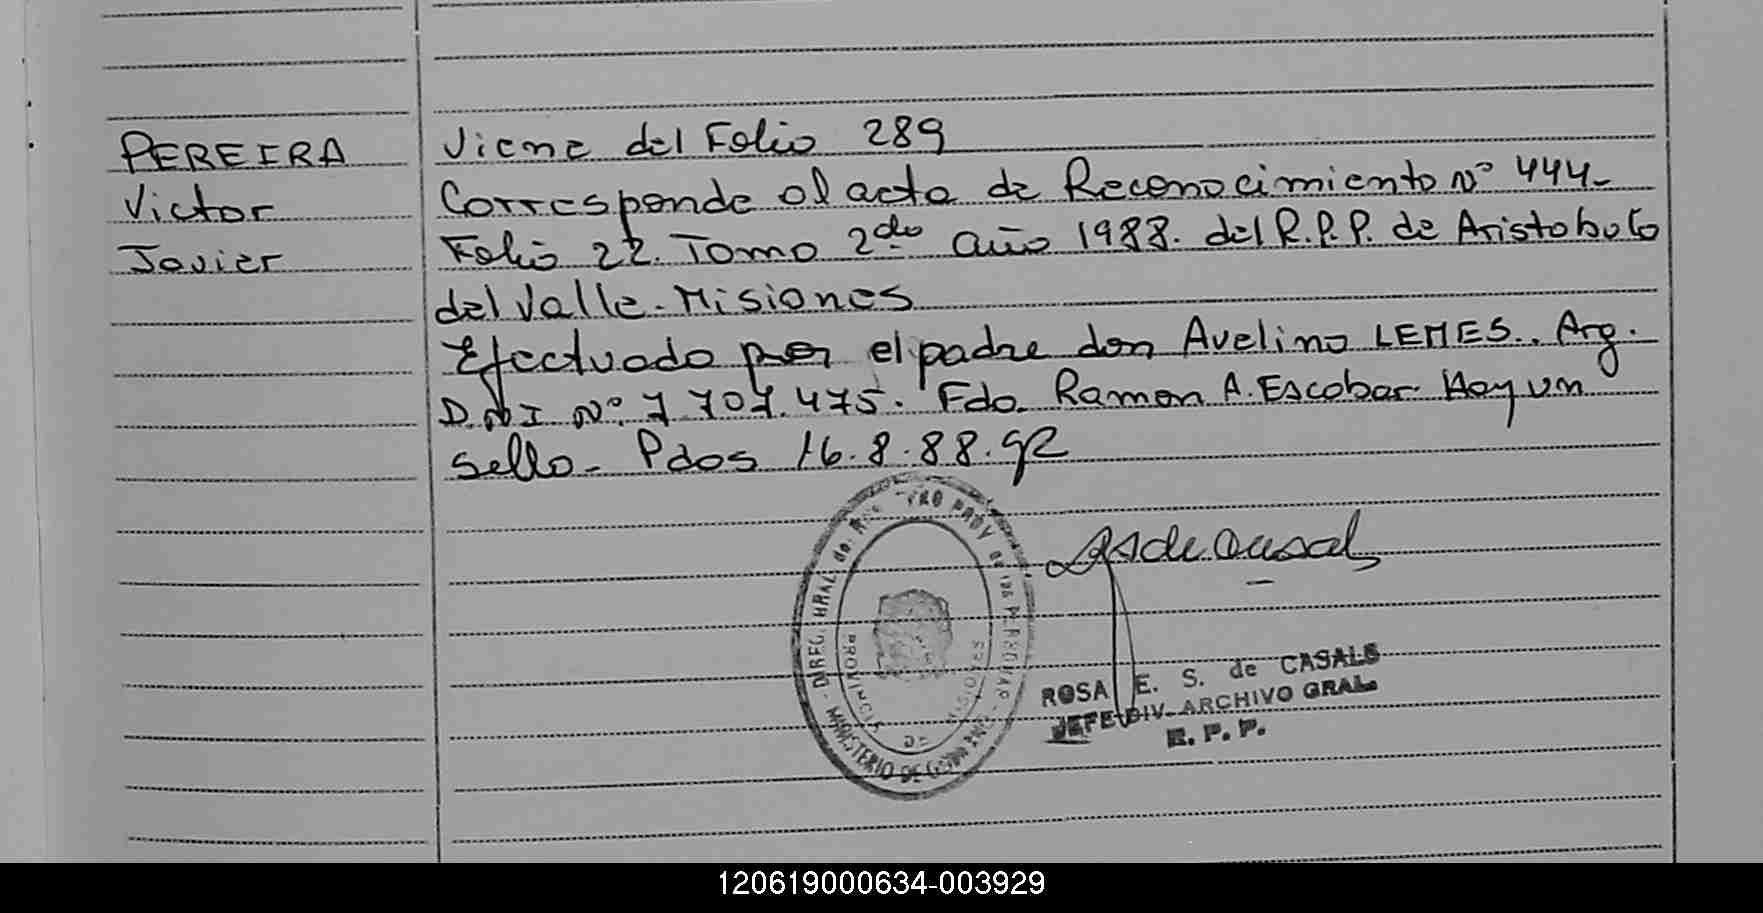 PEREIRA
Victor
Javier
Viene del Folio 289
Corresponde al acta de Reconocimiento Nº 444-
Folio 22. Tomo 2do año 1988. del R.P.P. de Aristobulo
del Valle-Misiones
Efectuado por el padre don Avelino LEMES.. Arg.
D.N.I Nº 7.707.475. Fdo. Ramon A. Escobar. Hay un
sello- Pdos 16.8.88.
DIREC. GRAL de PROV de las PERSONAS - MINISTERIO DE GOBIERNO
PROVINCIA DE MISIONES
ROSA E. S. de CASALS
JEFE DIV. ARCHIVO GRAL.
R. P. P.
120619000634-003929